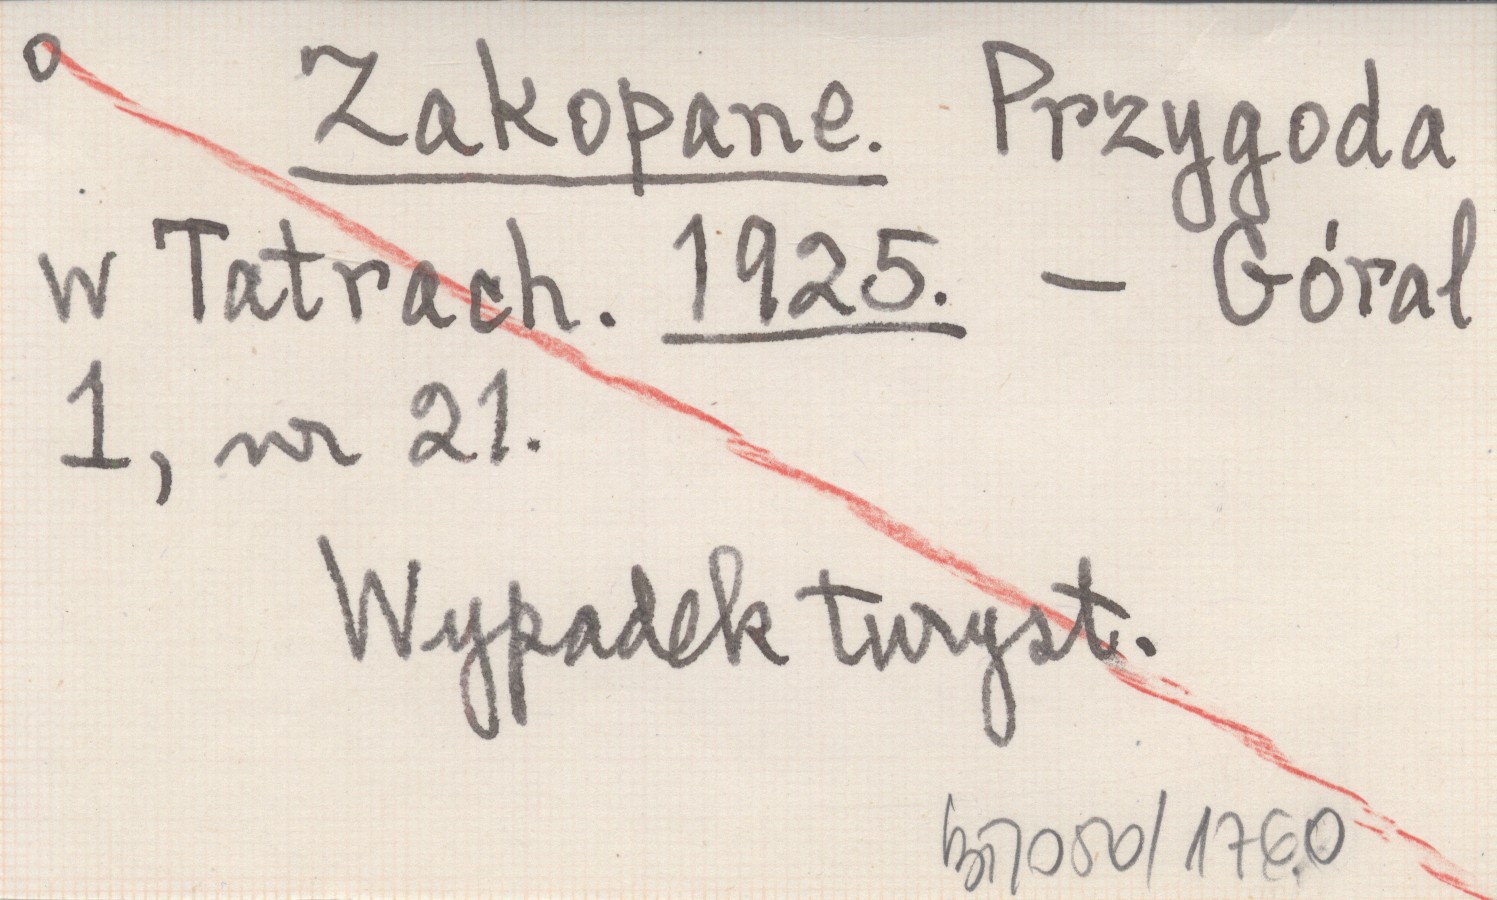 o Zakopane. Przygoda
w Tatrach. 1925. – Góral
1, nr 21.
Wypadek turyst.